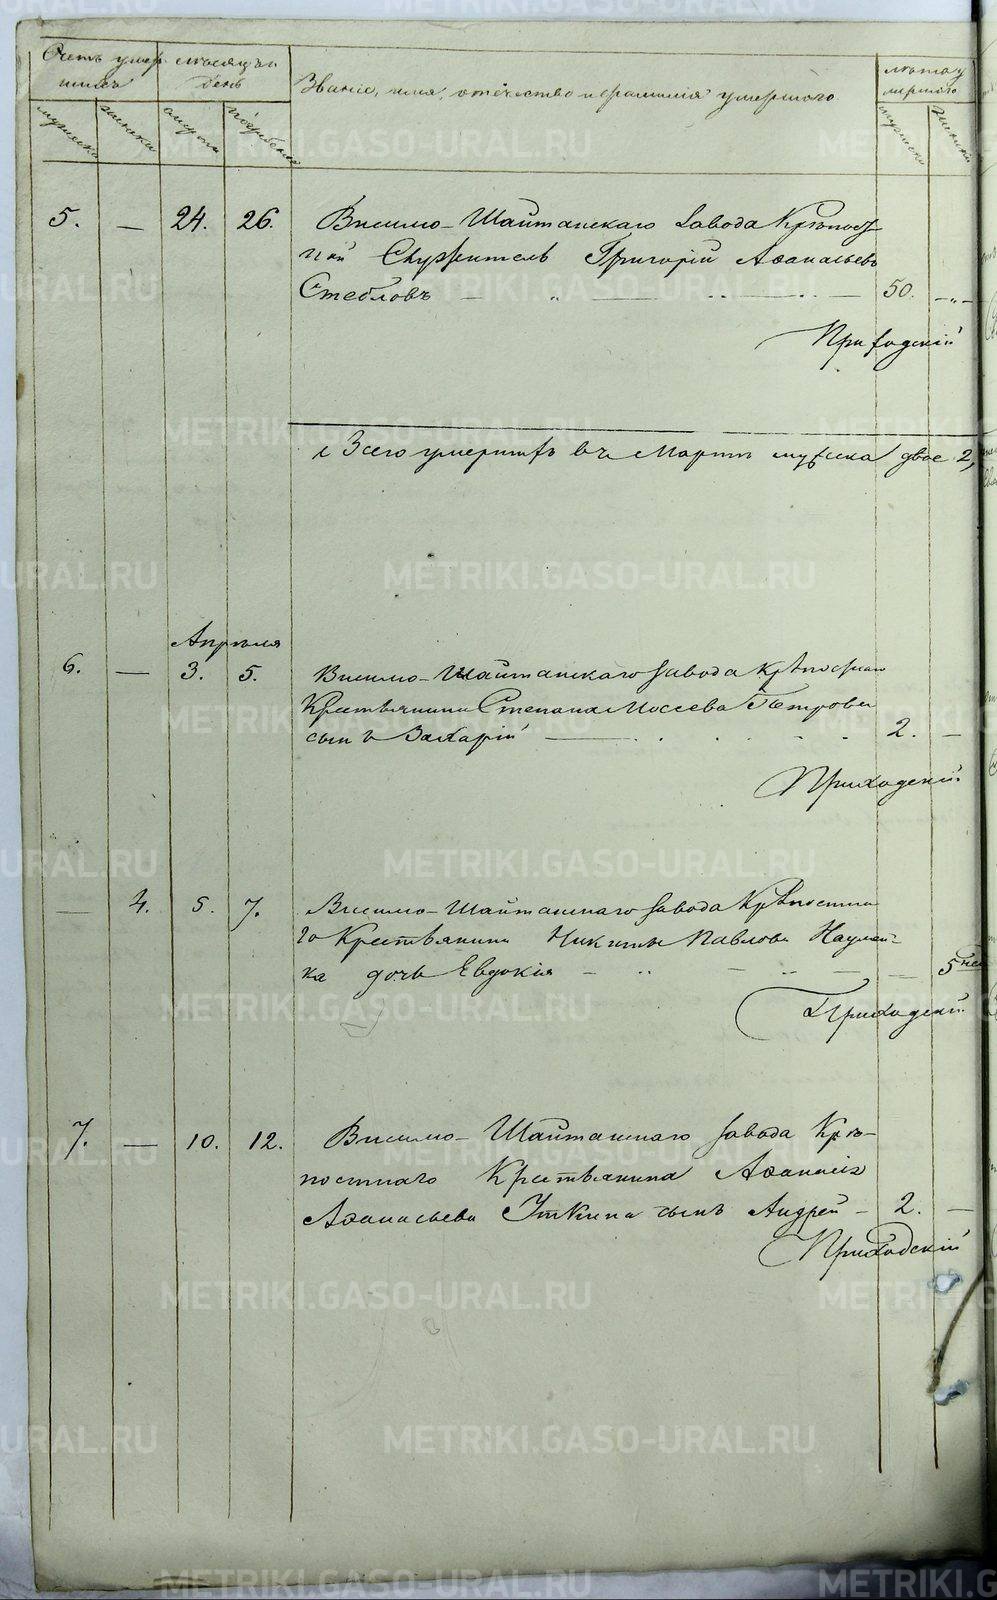 Счетъ умер месяцъ и лѣта у
шихъ день Званіе, имя, отечество и фамилія умершаго мершаго
мужеска женска смерти погребенія мужеска женска
5. — 24. 26. Висимо-Шайтанскаго Завода Крѣпост
ной Служитель Григорій Аѳанасьевъ
Стебловъ — 50. —
Приходскій
Всего умершихъ въ Мартѣ мужска двое 2,
Апрѣля
6. — 3. 5. Висимо-Шайтанскаго Завода Крѣпостнаго
Крестьянина Степана Моссева Петрова
сынъ Захарій — 2. —
Приходскій
— 4. 5. 7. Висимо-Шайтанскаго Завода Крѣпостна
го Крестьянина Никиты Павлова
ка дочь Евдокія — 5 нед
Приходскій
7. — 10. 12. Висимо-Шайтанскаго Завода Крѣ-
постнаго Крестьянина Аѳанасія
Аѳанасьева Уткина сынъ Андрей — 2. —
Приходскій
METRIKI.GASO-URAL.RU